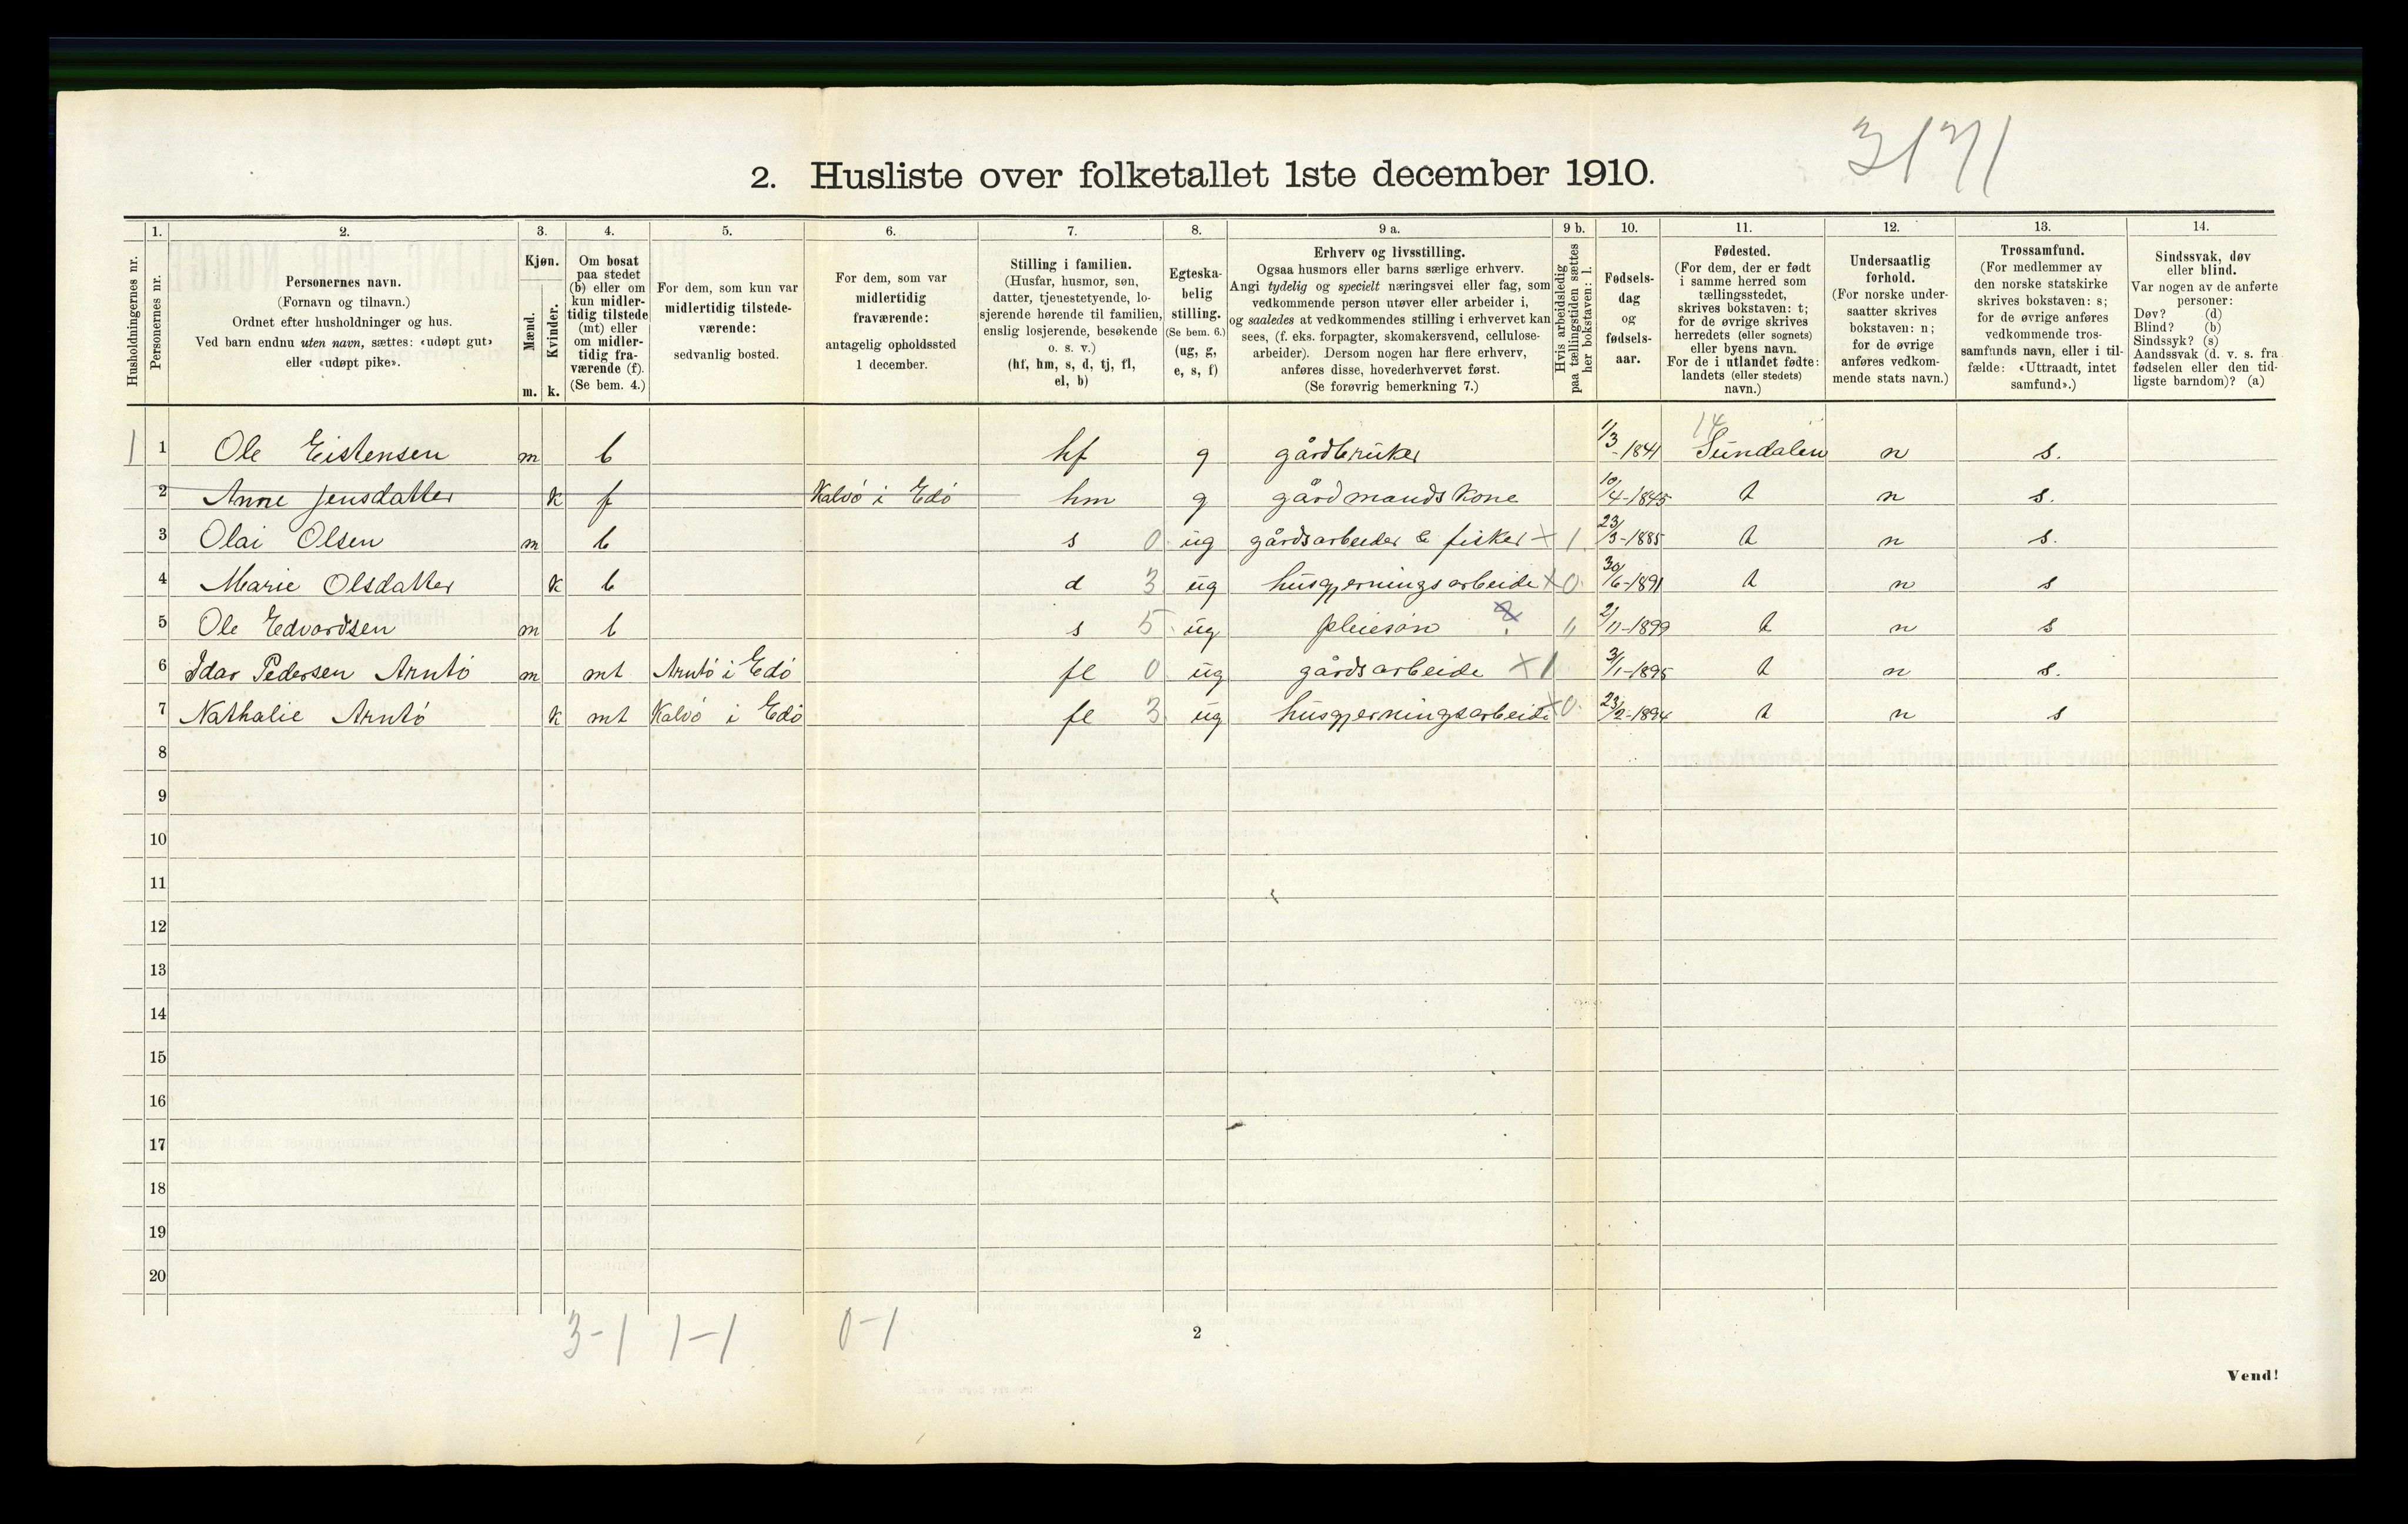 3171
2. Husliste over folketallet 1ste december 1910.
Husholdningernes nr.
1. Personernes nr.
2. Personernes navn. (Fornavn og tilnavn.) Ordnet efter husholdninger og hus. Ved barn endnu uten navn, sættes: «udøpt gut» eller «udøpt pike».
3. Kjøn. Mænd. m. Kvinder. k.
4. Om bosat paa stedet (b) eller om kun midlertidig tilstede (mt) eller om midlertidig fraværende (f). (Se bem. 4.)
5. For dem, som kun var midlertidig tilstedeværende: sedvanlig bosted.
6. For dem, som var midlertidig fraværende: antagelig opholdssted 1 december.
7. Stilling i familien. (Husfar, husmor, søn, datter, tjenestetyende, losjerende hørende til familien, enslig losjerende, besøkende o. s. v.) (hf, hm, s, d, tj, fl, el, b)
8. Egteskabelig stilling. (Se bem. 6.) (ug, g, e, s, f)
9 a. Erhverv og livsstilling. Ogsaa husmors eller barns særlige erhverv. Angi tydelig og specielt næringsvei eller fag, som vedkommende person utøver eller arbeider i, og saaledes at vedkommendes stilling i erhvervet kan sees, (f. eks. forpagter, skomakersvend, cellulosearbeider). Dersom nogen har flere erhverv, anføres disse, hovederhvervet først. (Se forøvrig bemerkning 7.)
9 b. Hvis arbeidsledig paa tællingstiden sættes her bokstaven: l.
10. Fødselsdag og fødselsaar.
11. Fødested. (For dem, der er født i samme herred som tællingsstedet, skrives bokstaven: t; for de øvrige skrives herredets (eller sognets) eller byens navn. For de i utlandet fødte: landets (eller stedets) navn.)
12. Undersaatlig forhold. (For norske undersaatter skrives bokstaven: n; for de øvrige anføres vedkommende stats navn.)
13. Trossamfund. (For medlemmer av den norske statskirke skrives bokstaven: s; for de øvrige anføres vedkommende trossamfunds navn, eller i tilfælde: «Uttraadt, intet samfund».)
14. Sindssvak, døv eller blind. Var nogen av de anførte personer: Døv? (d) Blind? (b) Sindssyk? (s) Aandssvak (d. v. s. fra fødselen eller den tidligste barndom)? (a)
1 1 Ole Eistensen m b hf g gårdbruker 1/3-1841 14 Sundalen n s.
2 Anne Jensdatter k f Kalvö i Edö hm g gårdmandskone 10/4-1845 t n s.
3 Olai Olsen m b s 0 ug gårdsarbeider & fisker x 1 23/3-1885 t n s.
4 Marie Olsdatter k b d 3 ug husgjerningsarbeide x 0 30/6-1891 t n s
5 Ole Edvardsen m b s 5 ug pleiesön 2/11-1899 t n s
6 Idar Pedersen Arntö m mt Arntö i Edö fl 0 ug gårdsarbeide x 1 3/1-1895 t n s.
7 Nathalie Arntö k mt Kalvö i Edö fl 3 ug husgjerningsarbeide x 0 23/2-1894 t n s
8
9
10
11
12
13
14
15
16
17
18
19
20
3-1 1-1 0-1
2
Vend!